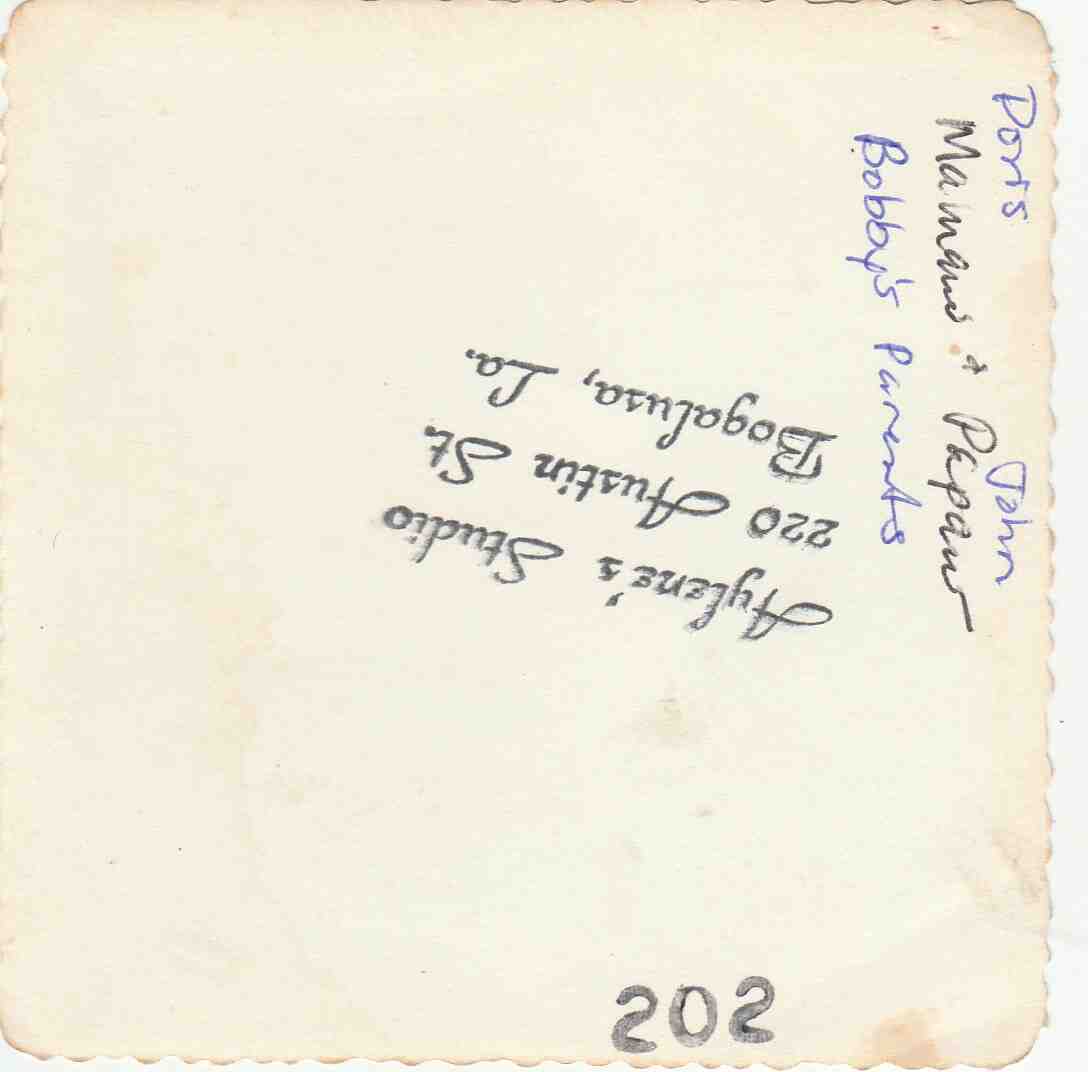 Doris John
Mamaw + Papaw
Bobby's Parents
Aylene's Studio
220 Austin St.
Bogalusa, La.
202